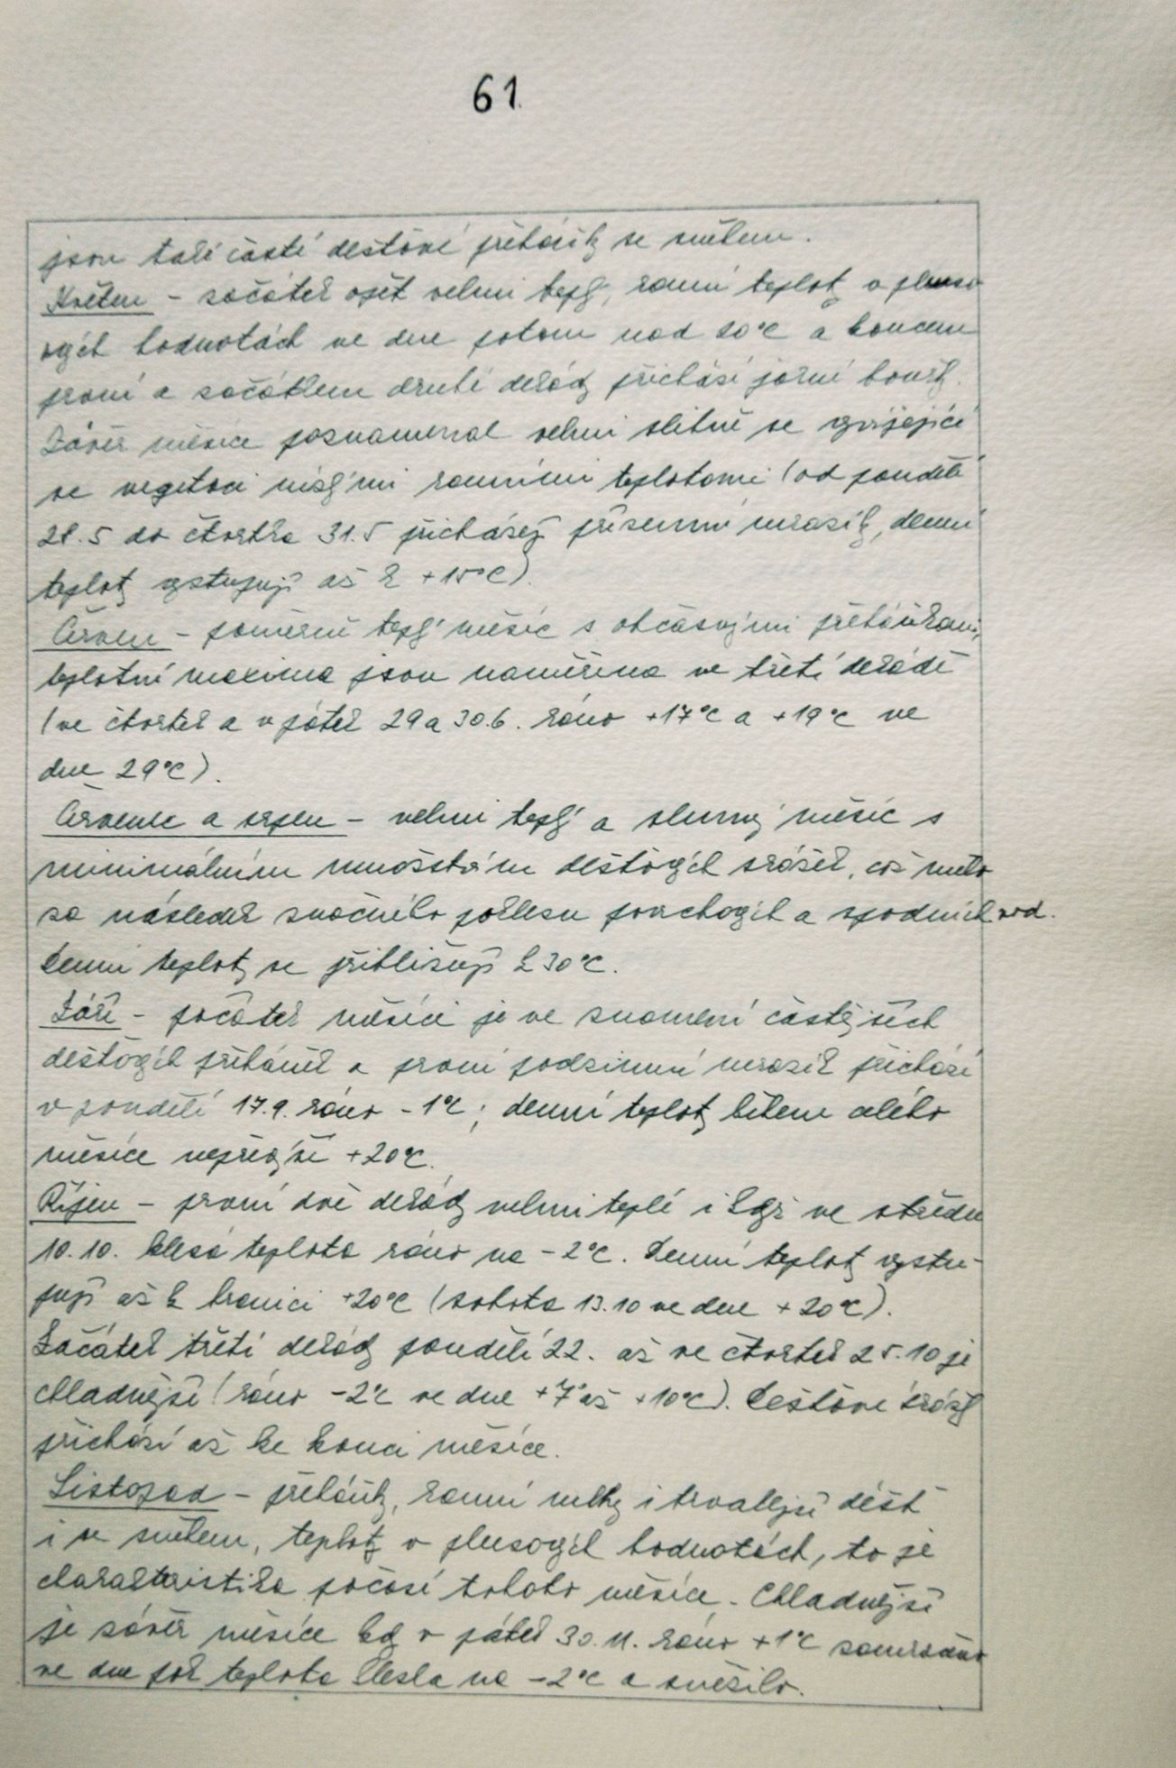 61
jsou také časté dešťové přeháňky se sněhem.
Květen - začátek opět velmi teplý, ranní teploty v pluso
vých hodnotách ve dne potom nad 20°C a koncem
první a začátkem druhé dekády přichází jarní bouřky.
Závěr měsíce poznamenal velmi slibně se vyvíjející
se vegetaci nízkými ranními teplotami (od pondělí
28.5 do čtvrtka 31.5 přicházejí přízemní mrazíky, denní
teploty vystupují až k +15°C).
Červen - poměrně teplý měsíc s občasnými přeháňkami,
teplotní maxima jsou naměřena ve třetí dekádě
(ve čtvrtek a v pátek 29 a 30.6. ráno +17°C a +19°C ve
dne 29°C).
Červenec a srpen - velmi teplý a slunný měsíc s
minimálním množstvím dešťových srážek, což mělo
za následek značného poklesu povrchových a spodních vod.
Denní teploty se přibližují k 30°C.
Září - počátek měsíce je ve znamení častějších
dešťových přeháněk a první podzimní mrazík přichází
v pondělí 17.9. ráno -1°C; denní teploty během celého
měsíce nepřevýší +20°C.
Říjen - první dvě dekády velmi teplé i když ve středu
10.10. klesá teplota ráno na -2°C. Denní teploty vystu-
pují až k hranici +20°C (sobota 13.10 ve dne +20°C).
Začátek třetí dekády pondělí 22. až ve čtvrtek 25.10 je
chladnější (ráno -2°C ve dne +7° až +10°C). Dešťové srážky
přichází až ke konci měsíce.
Listopad - přeháňky, ranní mlhy i trvalejší déšť
i se sněhem, teploty v plusových hodnotách, to je
charakteristika počasí tohoto měsíce. Chladnější
je závěr měsíce kdy v pátek 30.11. ráno +1°C zamračeno
ve dne pak teplota klesla na -2°C a sněžilo.